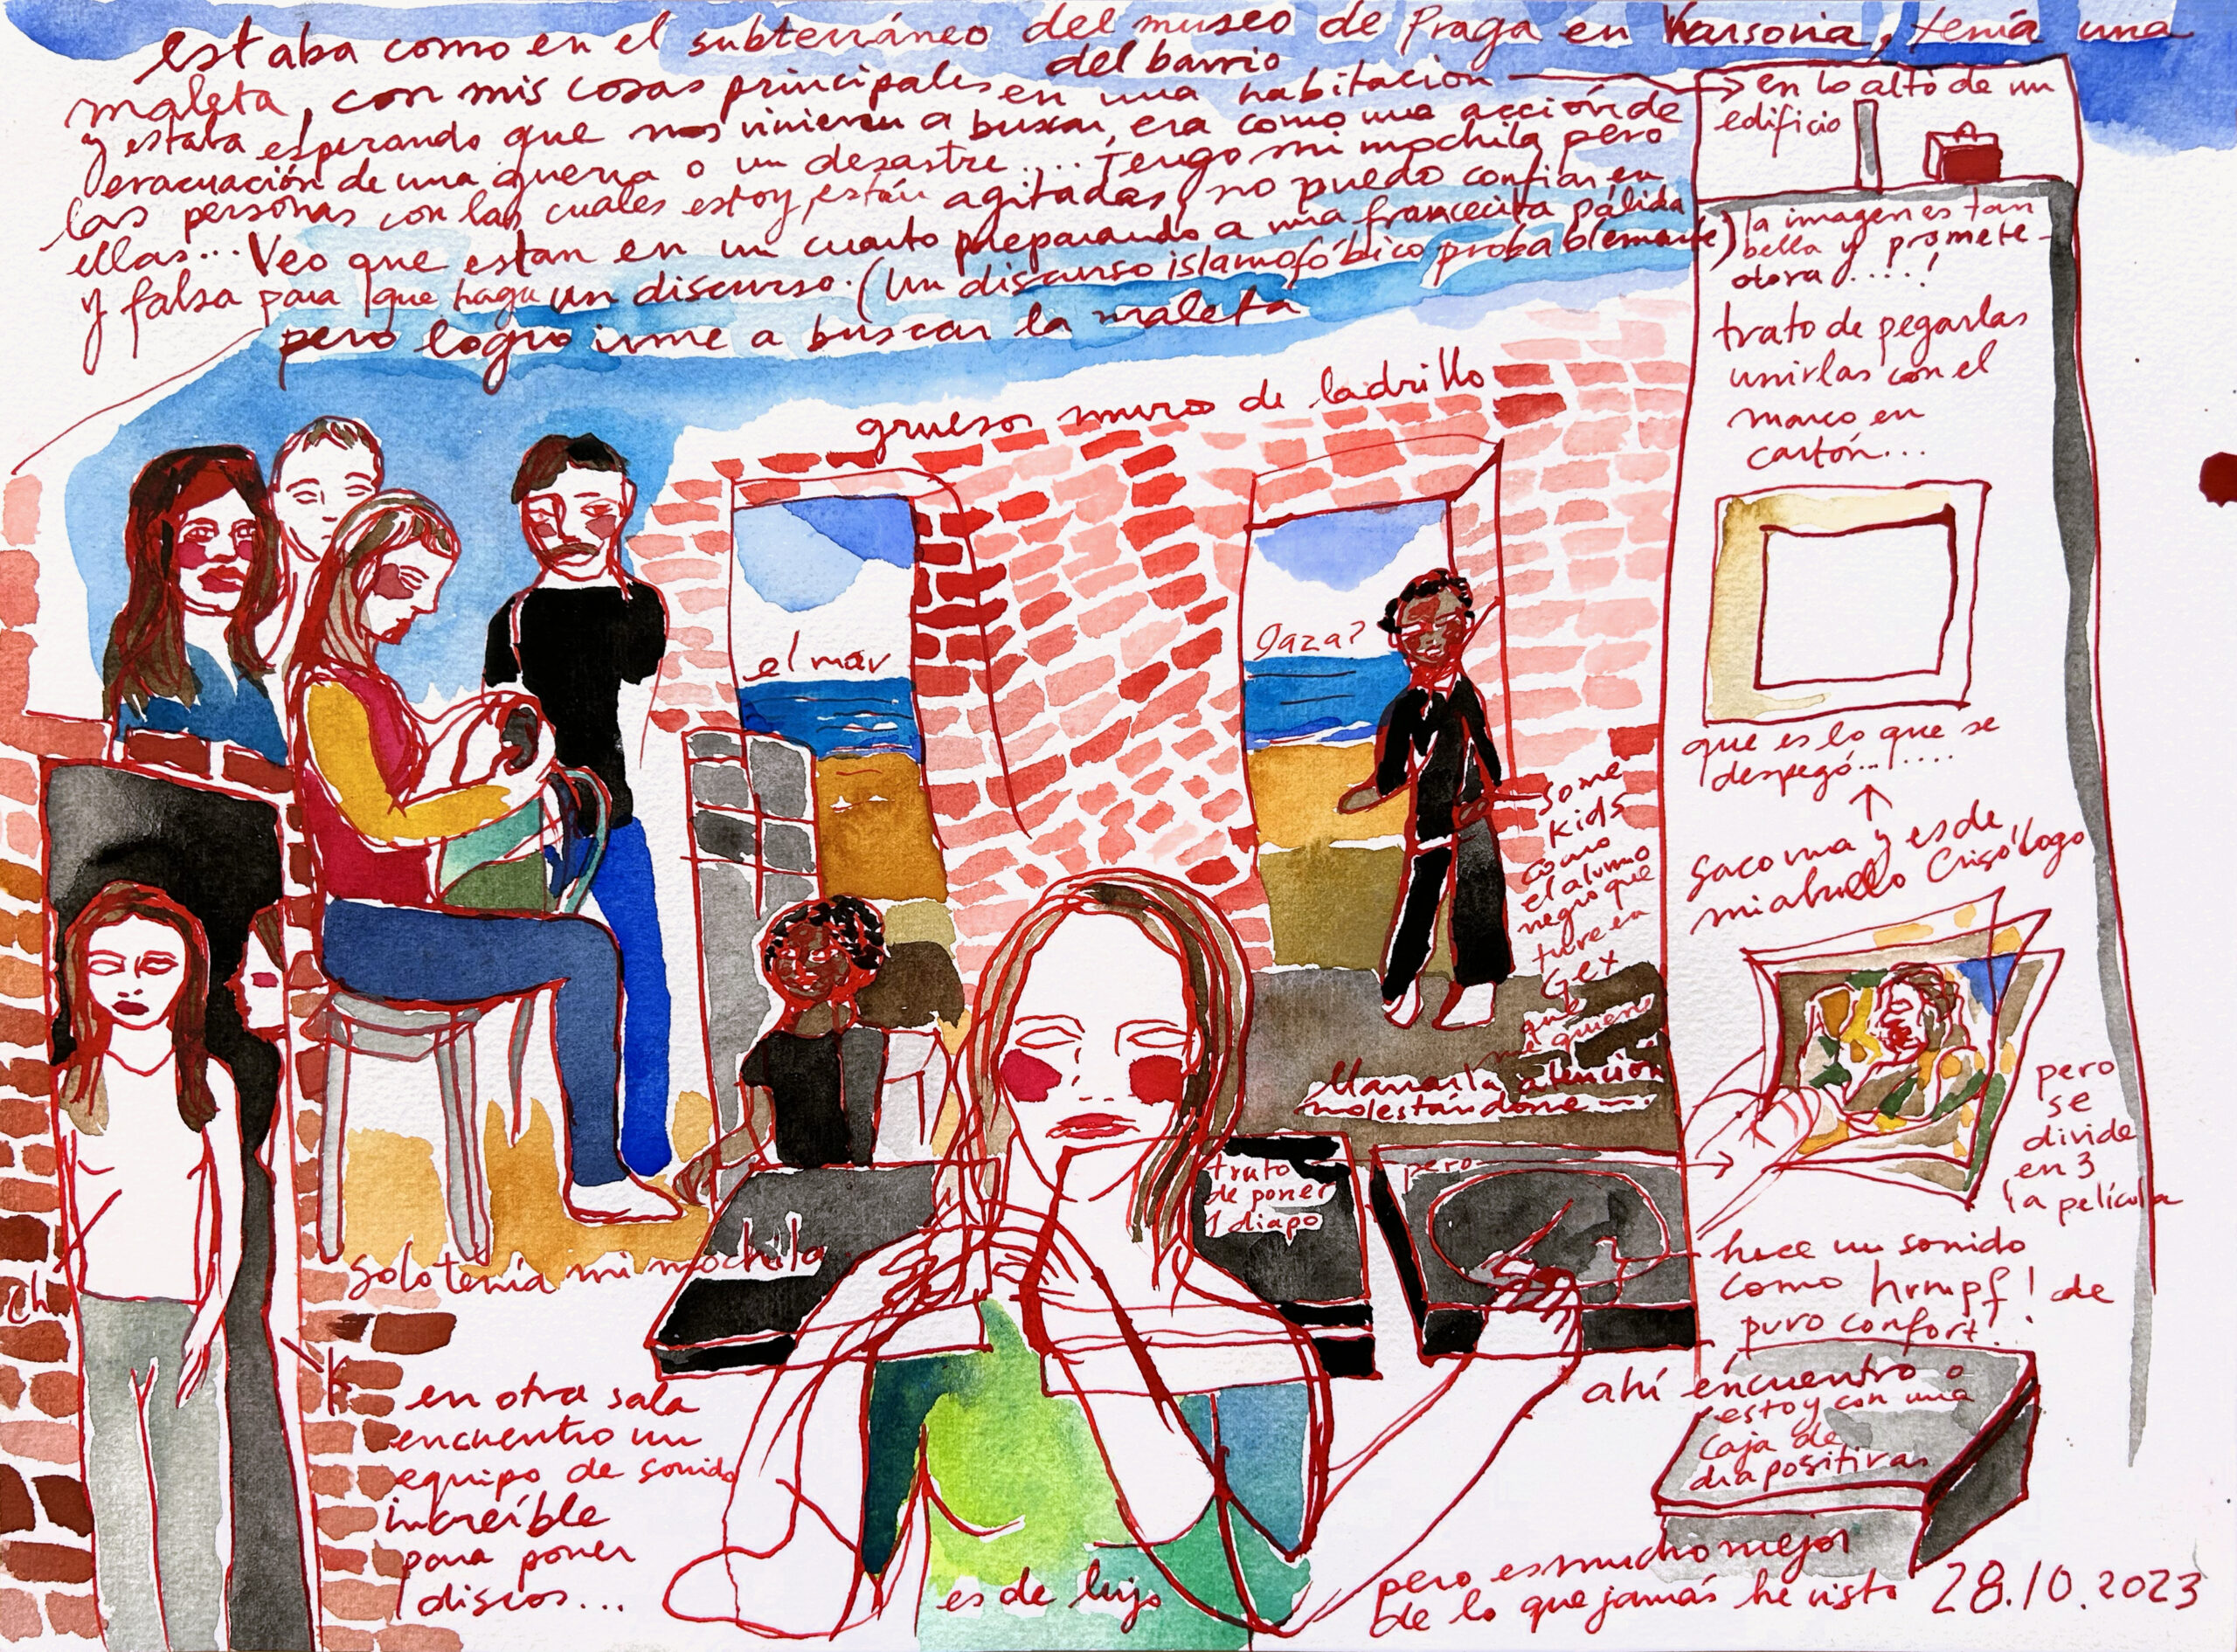 estaba como en el subterráneo del museo de Praga en Varsovia, tenía una
del barrio
maleta, con mis cosas principales en una habitación
y estaba esperando que nos vinieran a buscar, era como una acción de
evacuación de una guerra o un desastre.... Tengo mi mochila pero
las personas con las cuales estoy, están agitadas, no puedo confiar en
ellas... Veo que estan en un cuarto preparando a una francecita pálida
y falsa para que haga un discurso. (Un discurso islamofóbico probablemente)
pero logro irme a buscar la maleta
en lo alto de un
edificio
la imagen es tan
bella y promete-
dora....!
trato de pegarlas
unirlas con el
marco en
cartón...
que es lo que se
despegó.......
Saco una y es de
mi abuelo Crisólogo
pero
se
divide
en 3
la película
gruesos muros de ladrillo
el mar
Gaza?
some
kids
como
el alumno
negro que
tuve en
Gex
que
me quieren
llamar la atención
molestándome....
solo tenía mi mochila
trato
de poner
1 diapo
pero
hace un sonido
como hrmpf! de
puro confort!
ahí encuentro o
estoy con una
caja de
diapositivas
en otra sala
encuentro un
equipo de sonido
increíble
para poner
discos...
es de lujo
pero es mucho mejor
de lo que jamás he visto
28.10.2023